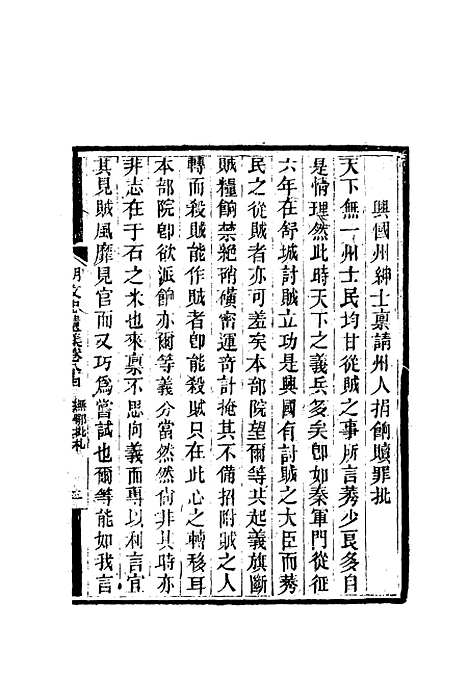 興國州紳士稟請州人捐餉贖罪批
天下無一州士民均甘從賊之事所言莠少良多自
是情理然此時天下之義兵多矣卽如秦軍門從征
六年在舒城討賊立功是興國有討賊之大臣而莠
民之從賊者亦可羞矣本部院望爾等共起義旗斷
賊糧餉禁絕硝磺密運奇計掩其不備招附賊之人
轉而殺賊能作賊者卽能殺賊只在此心之轉移耳
本部院卽欲派餉亦爾等義分當然然尙非其時亦
非志在于石之米也來稟不思向義而專以利言宜
其見賊風靡見官而又巧爲嘗試也爾等能如我言
文忠遺集卷 撫鄂批札